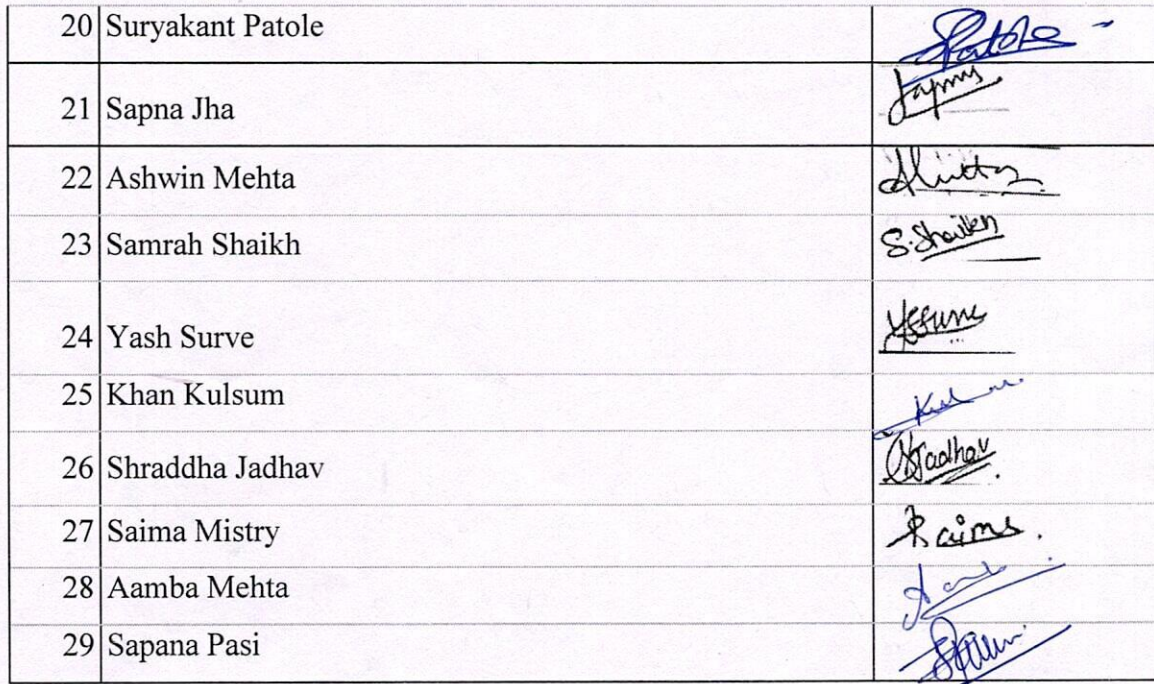 20 Suryakant Patole SPatole
21 Sapna Jha
22 Ashwin Mehta
23 Samrah Shaikh S.Shaikh
24 Yash Surve
25 Khan Kulsum
26 Shraddha Jadhav SJadhav
27 Saima Mistry Saima
28 Aamba Mehta
29 Sapana Pasi